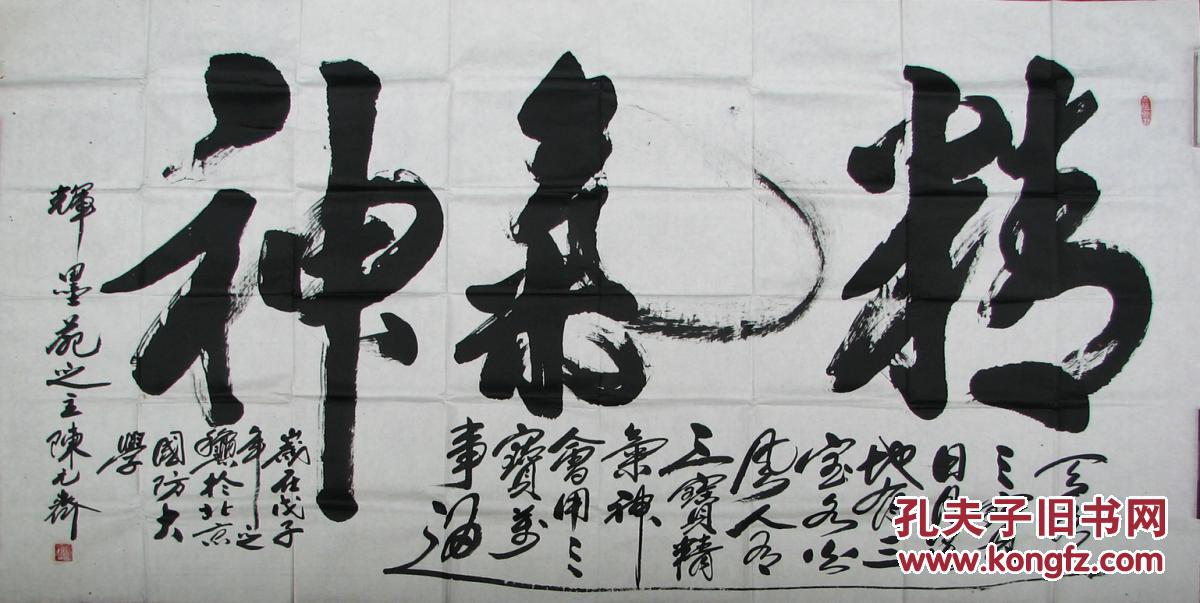 精氣神
天有
三宝
日月星
地有三
宝水火
風人有
三寶精
氣神
會用三
寶萬
事通
歲在戊子
年之
於北京
國防大
學
輝墨苑之主陳元
孔夫子旧书网
www.kongfz.com